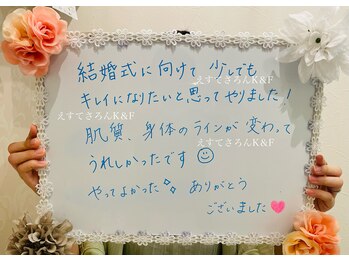 結婚式に向けて 少しでも
えすてさろんK&F
キレイになりたいと思ってやりました!
えすてさろんK&F
肌質、身体のラインが変わって
えすてさろんK&F
うれしかったです
やってよかった ありがとう
ございました